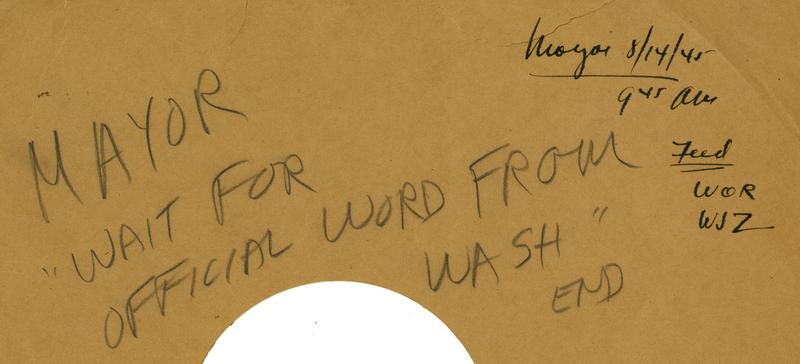 Mayor 8/14/45
9 45 AM
Feed
WOR
WJZ
MAYOR
"WAIT FOR
OFFICIAL WORD FROM
WASH"
END